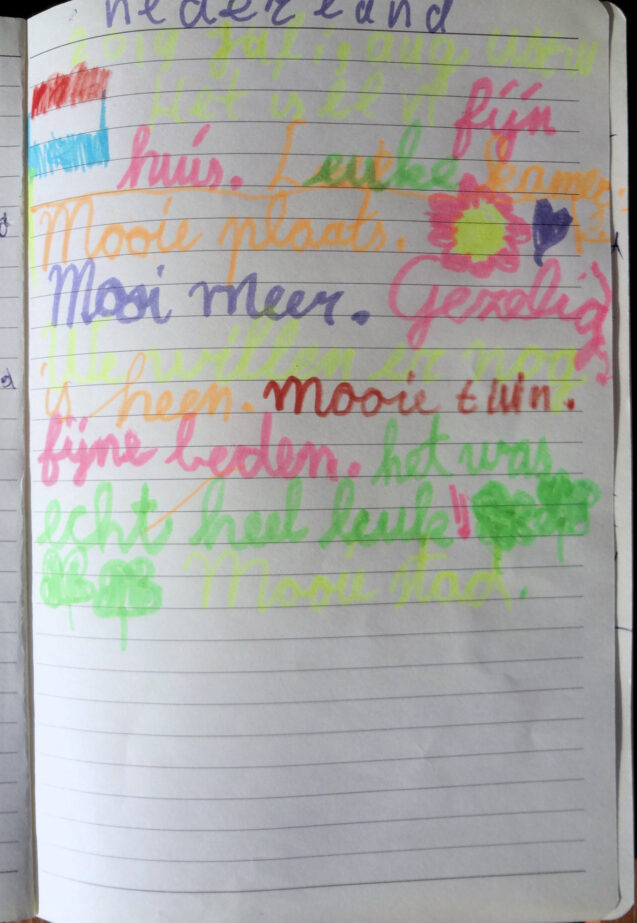 nederland
2014
Het is een fijn
huis. Leuke kamer.
Mooie plaats.
Mooi meer. Gezelig
We willen er nog
is heen. mooie tuin.
fijne beden. het was
echt heel leuk!!
Mooie stad.